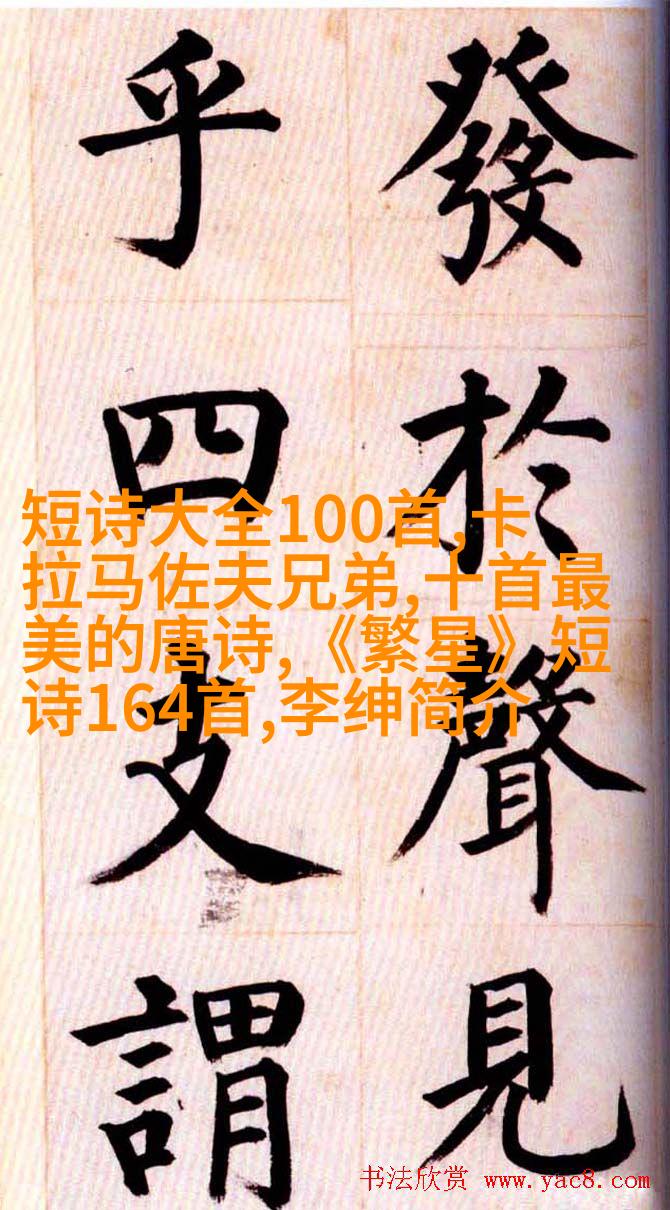 發於聲見
乎四支謂
短诗大全100首,卡
拉马佐夫兄弟,十首最
美的唐诗,《繁星》短
诗164首,李绅简介
书法欣赏 www.yac8.com